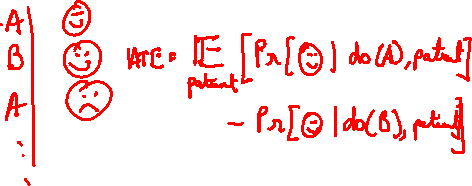 A 🙂
B 🙂 ATE = 𝔼 patient [Pr[🙂 | do(A), patient]
A ☹ - Pr[🙂 | do(B), patient]]
⋮